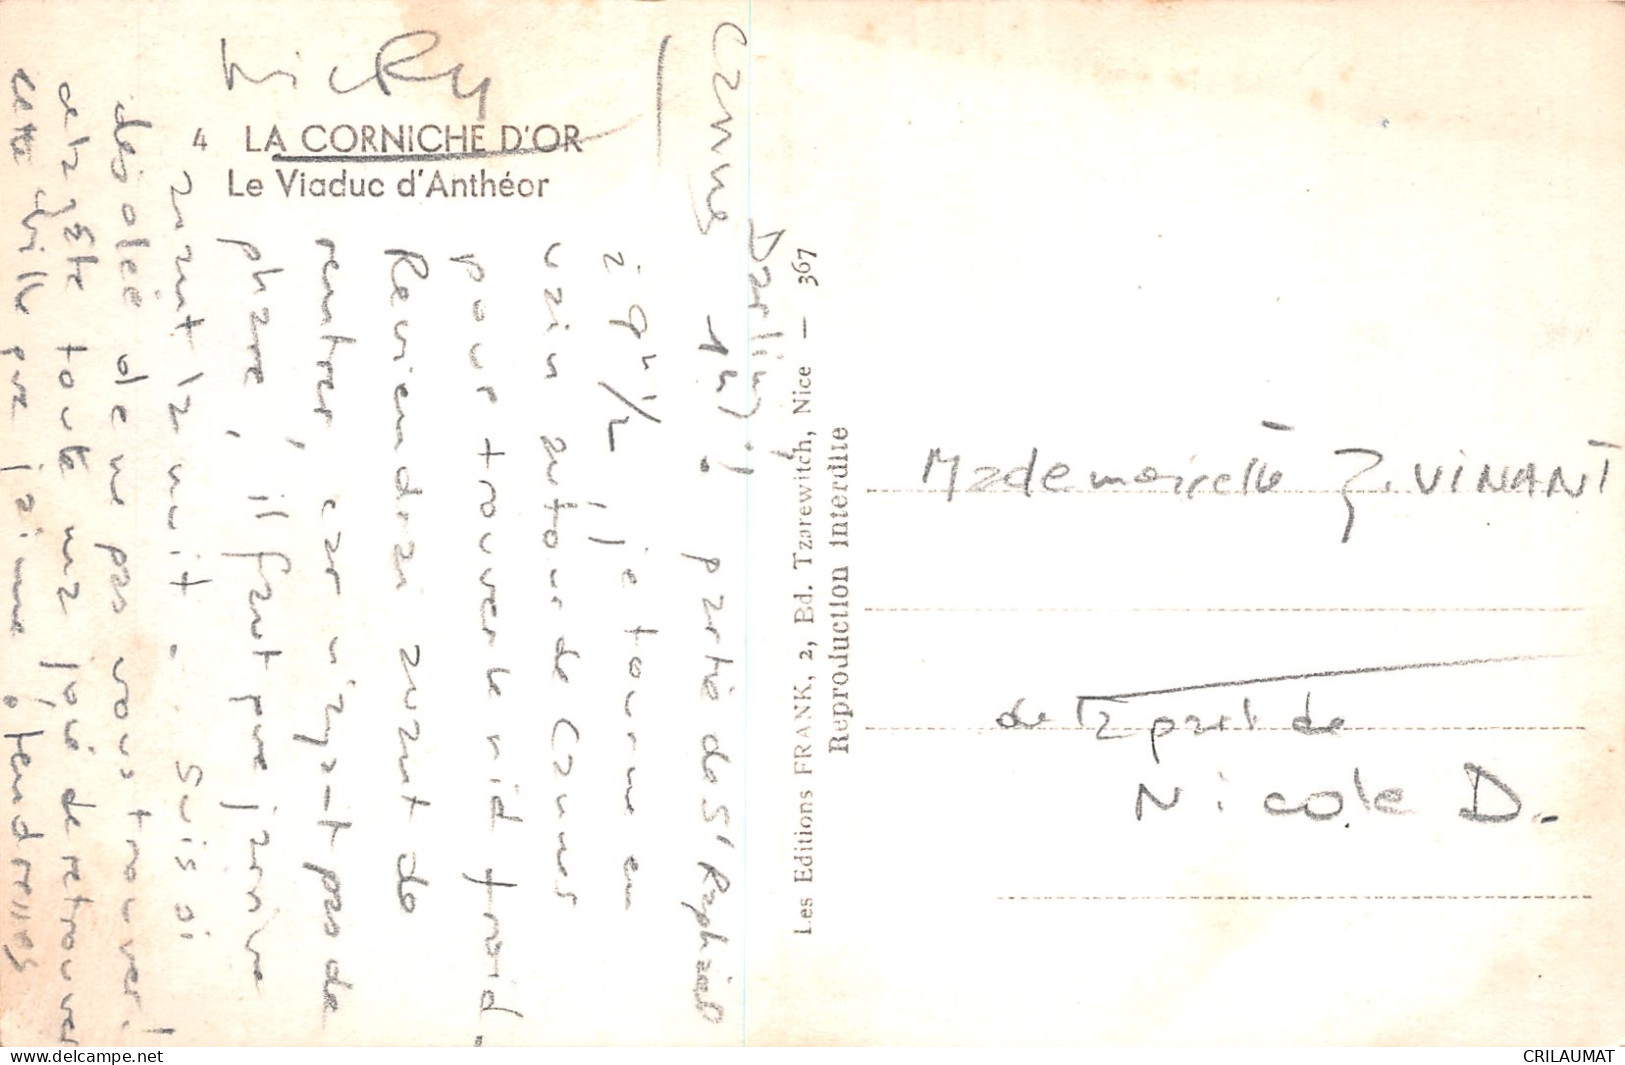 4 LA CORNICHE D'OR
Le Viaduc d'Anthéor
Cannes 1h
Darling!
! partie de St Raphaël
à 9h 1/2, je tourne en
vain autour de Cannes
pour trouver le nid froid.
Reviendrai avant de
rentrer, car n'ayant pas de
phare, il faut que j'arrive
avant la nuit. Suis si
désolée de ne pas vous trouver!
cela gâte toute ma joie de retrouver
cette ville que j'aime. tendresses
Nicky
Les Editions FRANK, 2, Bd. Tzarewitch, Nice — 367
Reproduction interdite
Mademoiselle J. VINANT
de la part de
Nicole D.
CRILAUMAT
www.delcampe.net